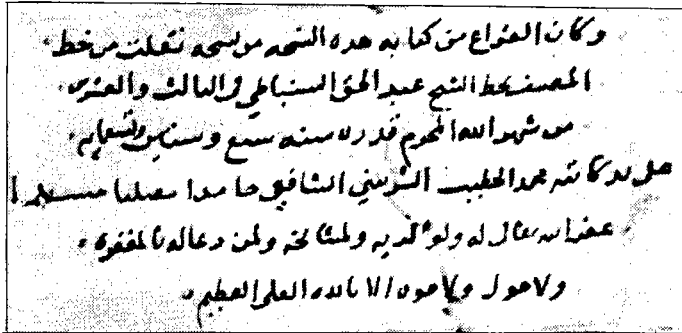 وكان الفراغ من كتابة هذه النسخه من نسخه نقلت من خط
المصنف بخط الشيخ عبد الحق السنباطي في الثالث والعشرين
من شهر الله المحرم سنه سبع وستين وتسعمايه
محمد الخطيب الشربيني الشافعي حامدا مصليا مسلما
غفر الله تعالى له ولوالديه ولمشايخه ولمن دعا له بالمغفره
ولا حول ولا قوة الا بالله العلي العظيم